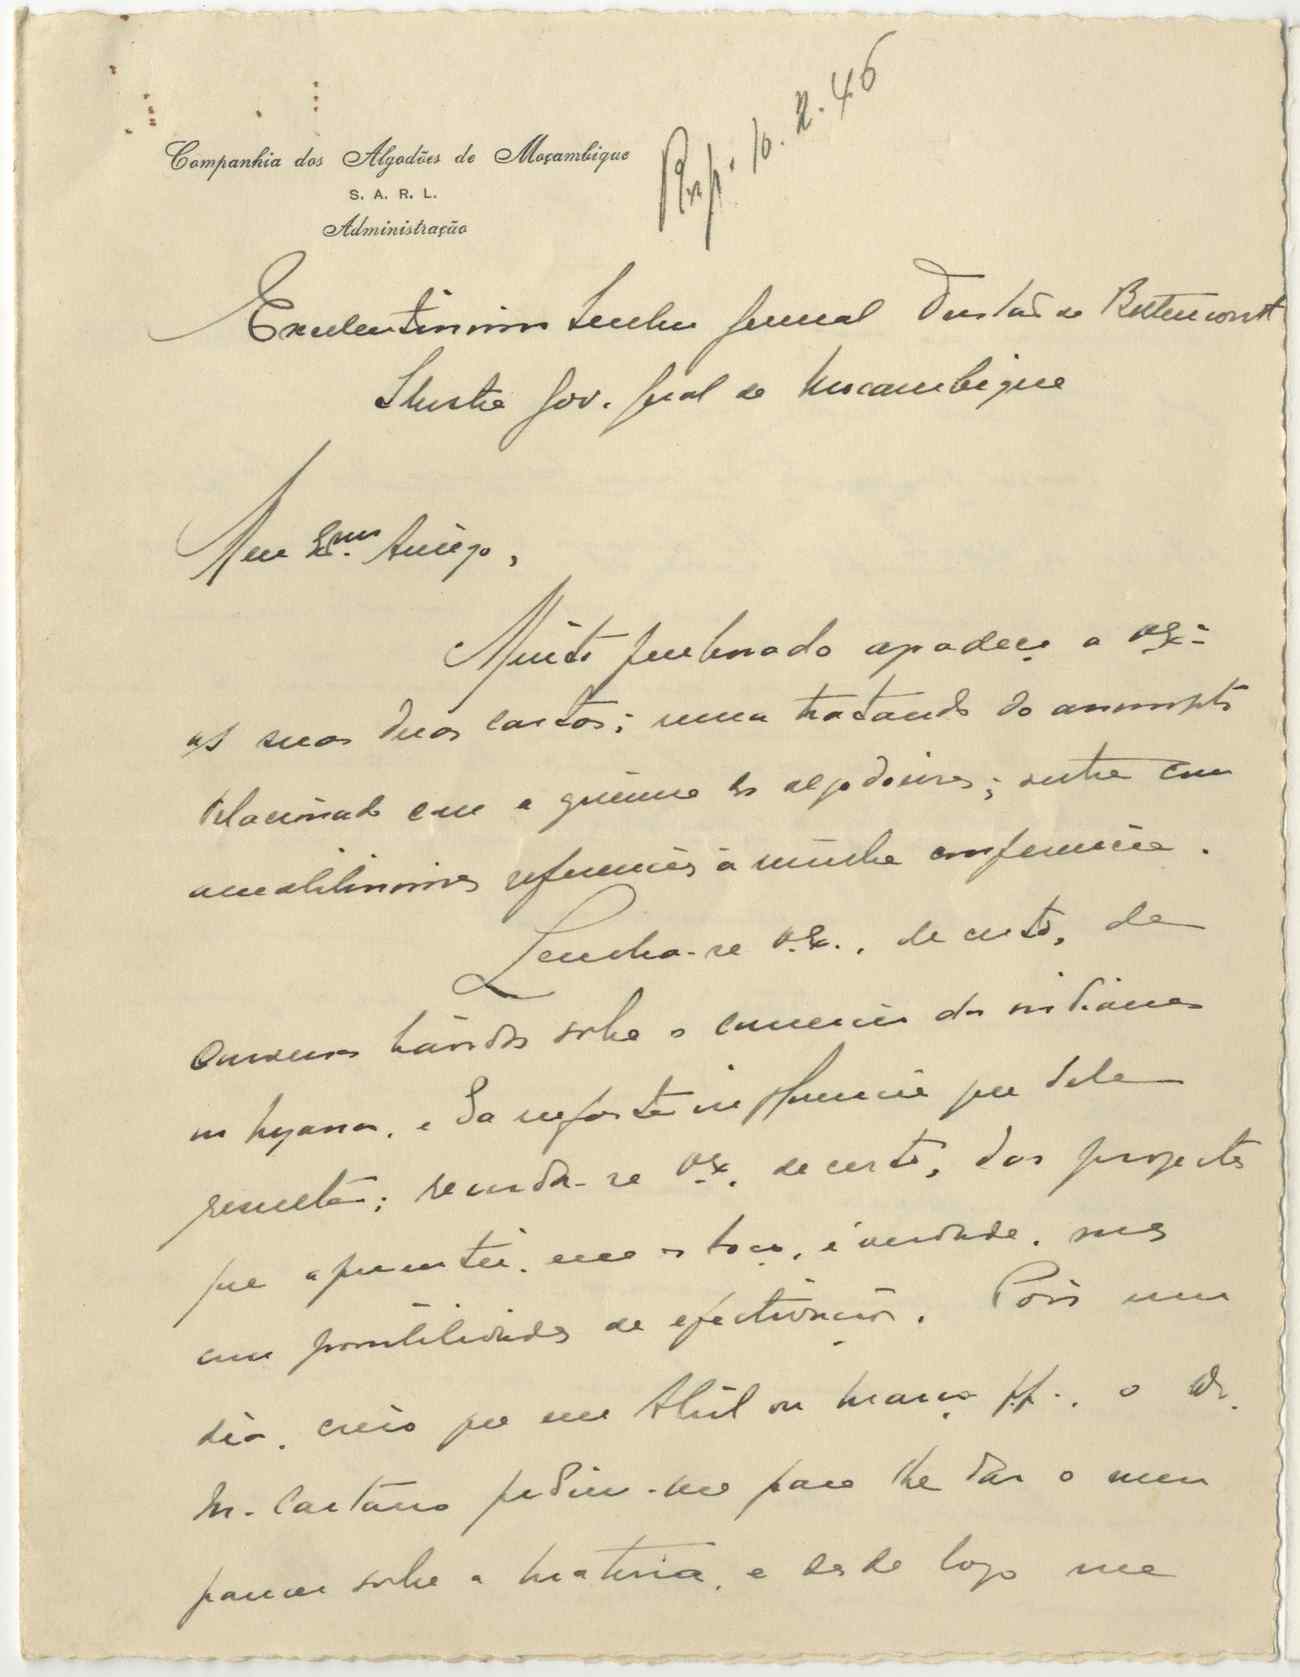 Companhia dos Algodões de Moçambique
S. A. R. L.
Administração
Resp. 10.2.46
Excelentissimo Senhor General Tristão de Bettencourt
Ilustre Gov. Geral de Moçambique
Meu Exmo. Amigo,
Muito penhorado agradeço a V. Exª.
as suas duas cartas; uma tratando do assumpto
relacionado com o gremio dos algodoeiros; outra com
amabilissimas referencias á minha conferencia.
Lembra-se V. Ex., de certo, de
conversas havidas sobre o comercio dos indianos
no Nyassa, e da nefasta influencia que dele
resulta; recorda-se V. Ex., de certo, dos projectos
que apresentei, em esboço, é verdade, mas
com possibilidades de efectivação. Pois um
dia, creio que em Abril ou Março pp., o Dr.
M. Caetano pediu-me para lhe dar o meu
parecer sobre a materia, e desde logo me